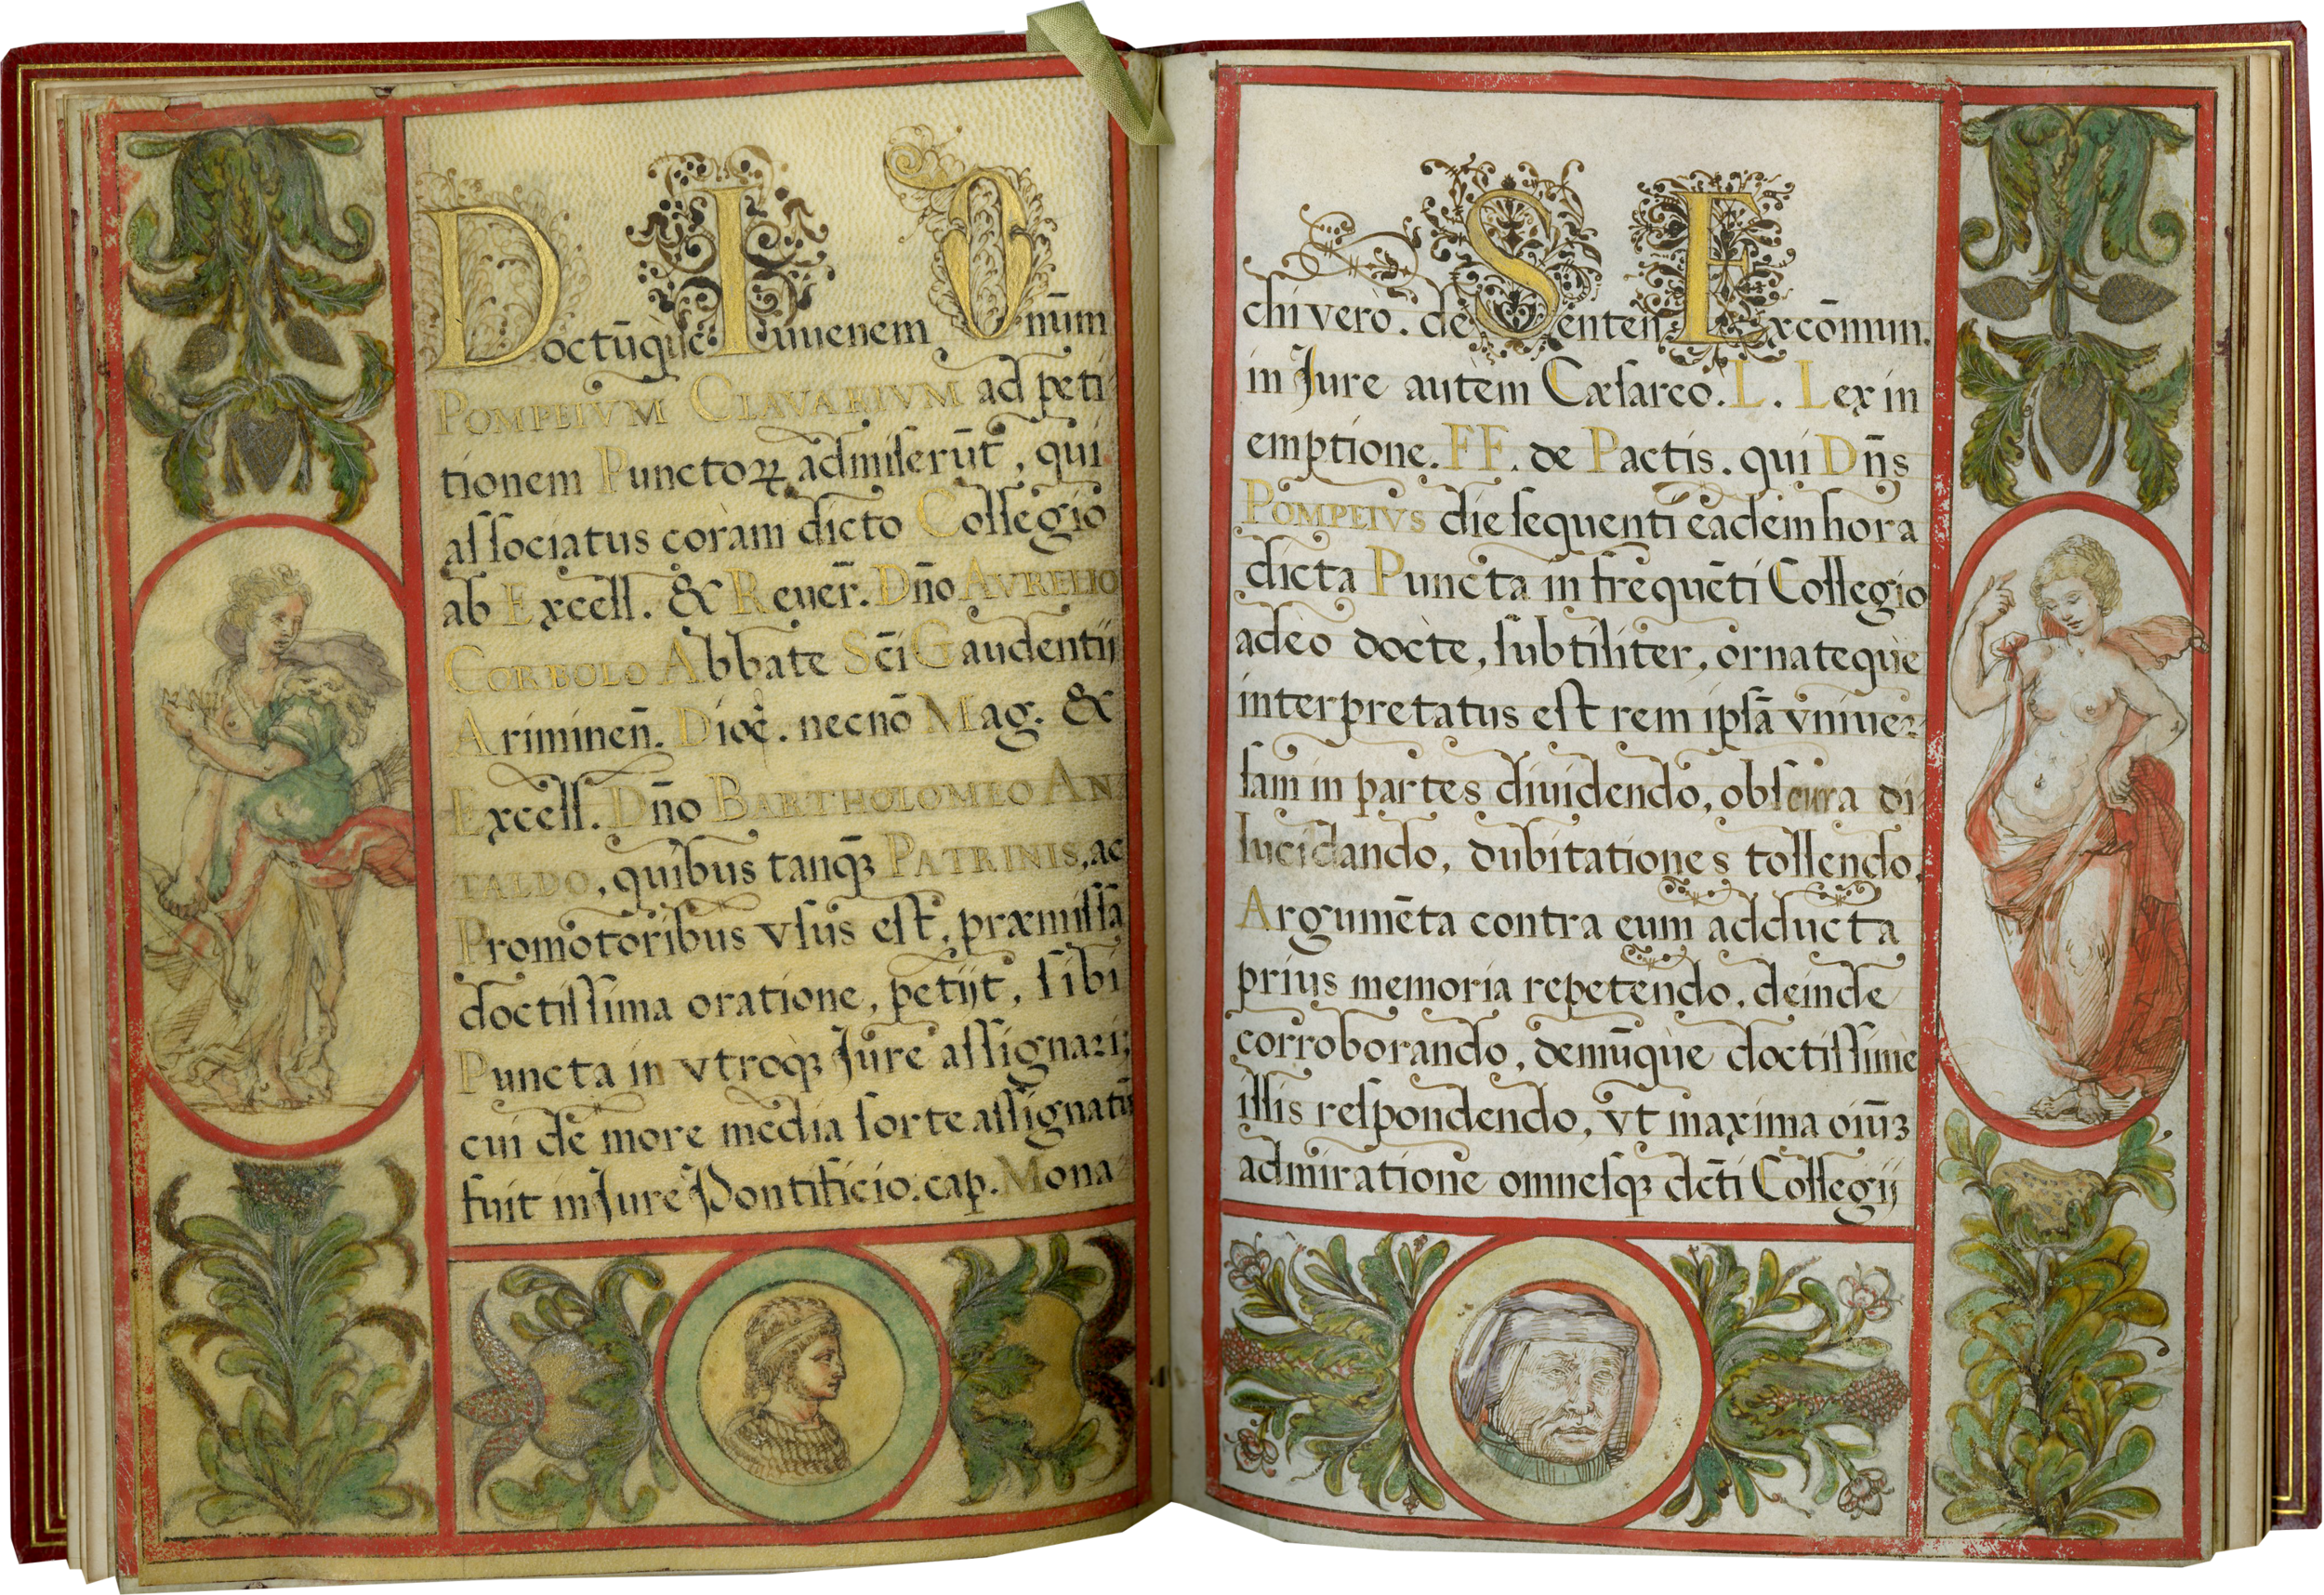 Doctūq̀ue Iuuenem Dnūm
POMPEIVM CLAVARIVM ad peti
tionem Punctoꝝ admiserūt, qui
aſſociatus coràm dicto Collegio
ab Excell. & Reuer̄. Dño AVRELIO
CORBOLO Abbate Sc̄i Gaudentij
Ariminen̄. Dioc̄. necnō Mag. &
Excell. Dño BARTHOLOMEO AN
TALDO, quibus tanqꝫ PATRINIS, ac
Promotoribus vſus eſt, præmiſſa
doctiſſima oratione, petijt, ſibi
Puncta in vtroqꝫ Jure aſſignari;
cui de more media ſorte aſſignatū
fuit in Jure Pontificio. cap. Mona
chi verò. de Senten. Excōmun.
in Jure autem Cæſareo. L. Lex in
emptione. FF. de Pactis. qui Dn̄s
POMPEIVS die ſequenti eadem hora
dicta Puncta in frequēti Collegio
adeò doctè, ſubtiliter, ornateq̀ue
interpretatus eſt rem ipſā vniuer
ſam in partes diuidendo, obſcura di
lucidando, dubitationes tollendo,
Argumēta contra eum adducta
prius memoria repetendo, deinde
corroborando, demūq̀ue doctiſſimè
illis reſpondendo, vt maxima oiūꝫ
admiratione omneſqꝫ dc̄ti Collegij